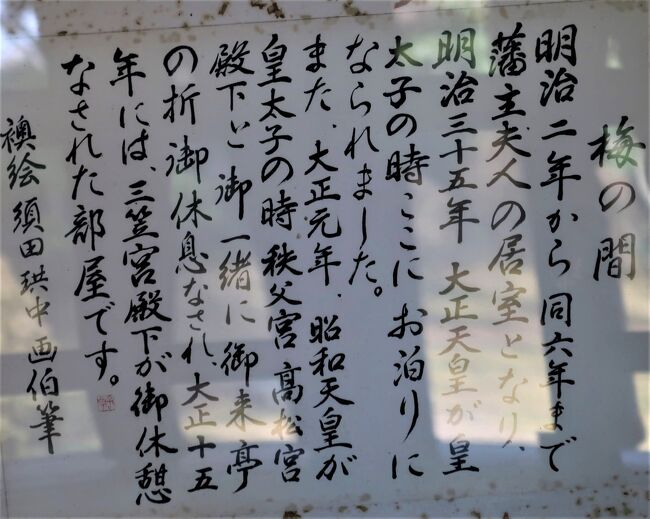 梅の間
明治二年から同六年まで
藩主夫人の居室となり、
明治三十五年 大正天皇が皇
太子の時ここにお泊りに
なられました。
また、大正元年、昭和天皇が
皇太子の時 秩父宮 高松宮
殿下と御一緒に御来亭
の折御休息なされ大正十五
年には、三笠宮殿下が御休憩
なされた部屋です。
襖絵 須田珙中画伯筆